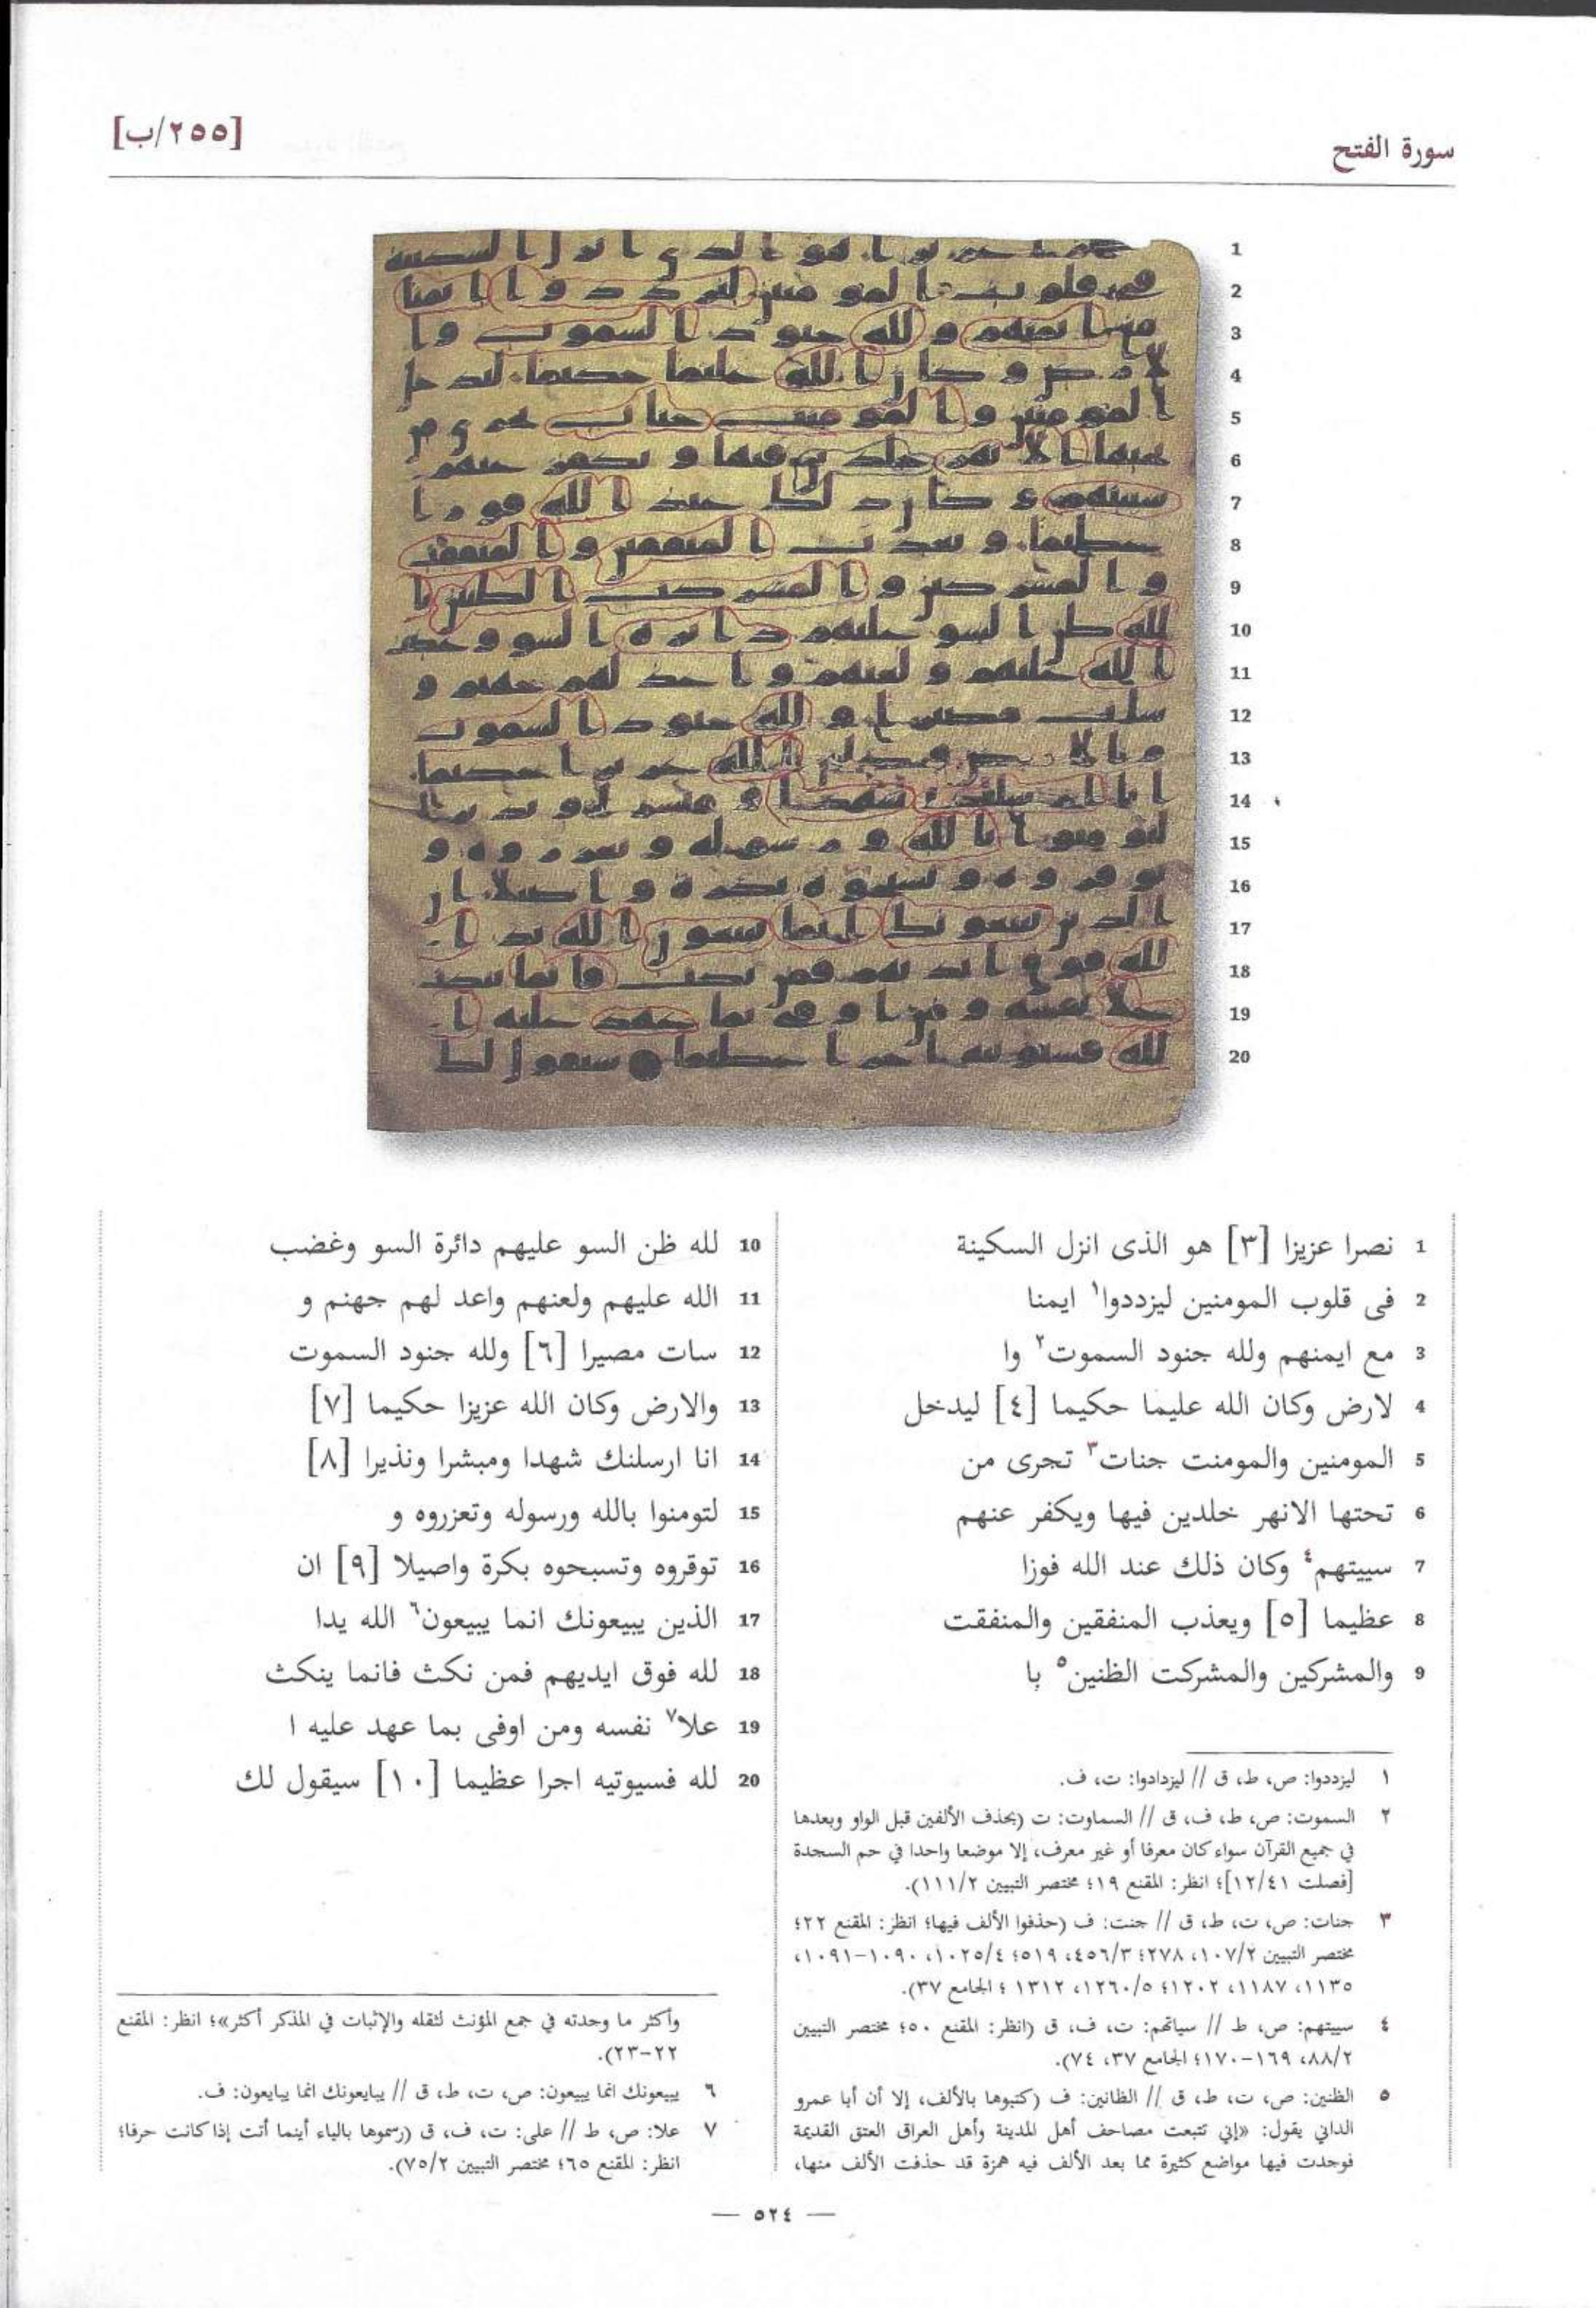 سورة الفتح
[٢٥٥/ب]
1 نصرا عزيزا [٣] هو الذى انزل السكينة
2 فى قلوب المومنين ليزددوا١ ايمنا
3 مع ايمنهم ولله جنود السموت٢ وا
4 لارض وكان الله عليما حكيما [٤] ليدخل
5 المومنين والمومنت جنات٣ تجرى من
6 تحتها الانهر خلدين فيها ويكفر عنهم
7 سييتهم٤ وكان ذلك عند الله فوزا
8 عظيما [٥] ويعذب المنفقين والمنفقت
9 والمشركين والمشركت الظنين٥ با
10 لله ظن السو عليهم دائرة السو وغضب
11 الله عليهم ولعنهم واعد لهم جهنم و
12 سات مصيرا [٦] ولله جنود السموت
13 والارض وكان الله عزيزا حكيما [٧]
14 انا ارسلنك شهدا ومبشرا ونذيرا [٨]
15 لتومنوا بالله ورسوله وتعزروه و
16 توقروه وتسبحوه بكرة واصيلا [٩] ان
17 الذين يبيعونك انما يبيعون٦ الله يدا
18 لله فوق ايديهم فمن نكث فانما ينكث
19 علا٧ نفسه ومن اوفى بما عهد عليه ا
20 لله فسيوتيه اجرا عظيما [١٠] سيقول لك
١ ليزددوا: ص، ط، ق // ليزدادوا: ت، ف.
٢ السموت: ص، ط، ف، ق // السماوت: ت (بحذف الألفين قبل الواو وبعدها
في جميع القرآن سواء كان معرفا أو غير معرف، إلا موضعا واحدا في حم السجدة
[فصلت ١٢/٤١]؛ انظر: المقنع ١٩؛ مختصر التبيين ١١١/٢).
٣ جنات: ص، ت، ط، ق // جنت: ف (حذفوا الألف فيها؛ انظر: المقنع ٢٢؛
مختصر التبيين ١٠٧/٢، ٢٧٨؛ ٤٥٦/٣، ٥١٩؛ ١٠٢٥/٤، ١٠٩٠-١٠٩١،
١١٣٥، ١١٨٧، ١٢٠٢؛ ١٢٦٠/٥، ١٣١٢ ؛ الجامع ٣٧).
٤ سييتهم: ص، ط // سياتهم: ت، ف، ق (انظر: المقنع ٥٠؛ مختصر التبيين
٨٨/٢، ١٦٩-١٧٠؛ الجامع ٣٧، ٧٤).
٥ الظنين: ص، ت، ط، ق // الظانين: ف (كتبوها بالألف، إلا أن أبا عمرو
الداني يقول: «إني تتبعت مصاحف أهل المدينة وأهل العراق العتق القديمة
فوجدت فيها مواضع كثيرة مما بعد الألف فيه همزة قد حذفت الألف منها،
وأكثر ما وجدته في جمع المؤنث لثقله والإثبات في المذكر أكثر»؛ انظر: المقنع
٢٢-٢٣).
٦ يبيعونك انما يبيعون: ص، ت، ط، ق // يبايعونك انما يبايعون: ف.
٧ علا: ص، ط // على: ت، ف، ق (رسموها بالياء أينما أتت إذا كانت حرفا؛
انظر: المقنع ٦٥؛ مختصر التبيين ٧٥/٢).
— ٥٢٤ —